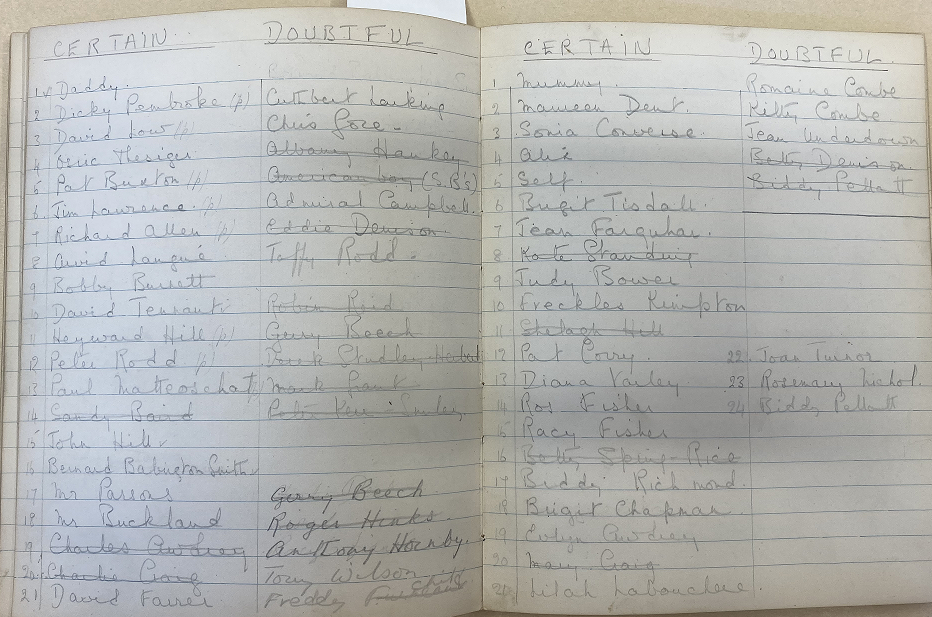 CERTAIN
DOUBTFUL
1 Daddy.
2 Dicky Pembroke (p)
3 David Low (p)
4 Eric Thesiger
5 Pat Buxton (p)
6 Jim Lawrence (p)
7 Richard Allen (p)
8
9 Bobby
10 David Tennant
11 Heyward Hill (p)
12 Peter Rodd (p)
13 Paul
14 Sandy Baird
15 John Hill
16 Bernard Babington Smith
17 Mr Parsons
18 Mr Buckland
19 Charles Awdrey
20 Charlie Craig
21 David
Cuthbert Larking
Chris
Albany Hankey
American boy (S.B's)
Admiral Campbell.
Eddie Denison
Taffy Rodd.
Robin Reid
Gerry Beech
Derek Studley Herbert
Mark Grant
Peter Smiley
Gerry Beech
Roger Hinks
Anthony Hornby.
Tony Wilson
Freddy
CERTAIN
DOUBTFUL
1 Mummy.
2 Maureen Dent.
3 Sonia Converse.
4 Alix
5 Self.
6 Brigit Tisdall.
7 Jean Farquhar.
8 Kate Standing
9 Judy Bower
10 Freckles Kimpton
11 Shelagh Hill
12 Pat Corry.
13 Diana Varley
14 Ros Fisher
15 Racy Fisher
16 Betty Spring-Rice
17 Biddy Richmond.
18 Brigit Chapman
19 Evlyn Awdrey
20 Mary Craig
21 Lilah Labouchere
Romaine Combe
Kitty Combe
Jean Underdown
Betty Denison
Biddy Pellatt
22 Joan Turnor
23 Rosemary Nichol.
24 Biddy Pellatt